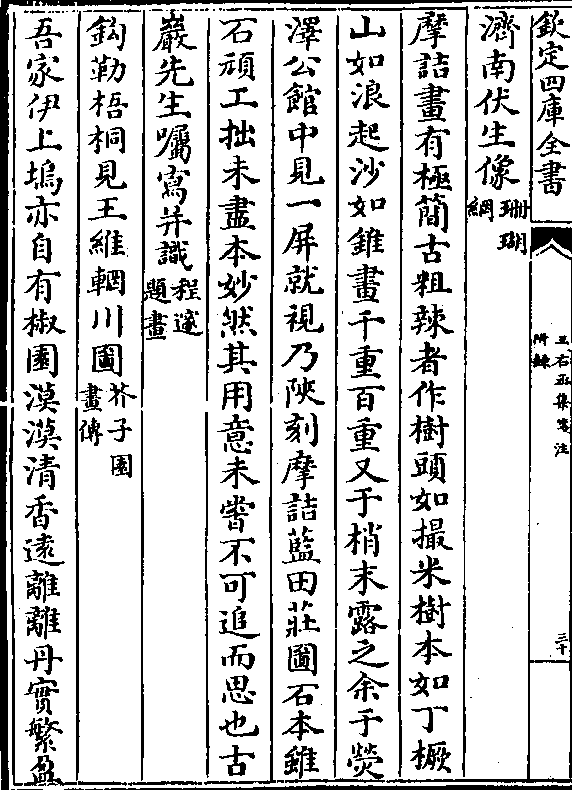 欽定四庫全書
王右丞集箋注
附録
三十
濟南伏生像珊瑚網
摩詰畫有極簡古粗辣者作樹頭如撮米樹本如丁橛
山如浪起沙如錐畫千重百重又于梢末露之余于熒
澤公館中見一屏就視乃陜刻摩詰藍田莊圖石本雖
石頑工拙未盡本妙然其用意未嘗不可追而思也古
巖先生囑寫并識程邃題畫
鈎勒梧桐見王維輞川圖芥子園畫傳
吾家伊上塢亦自有椒園漠漠清香逺離離丹實繁盈